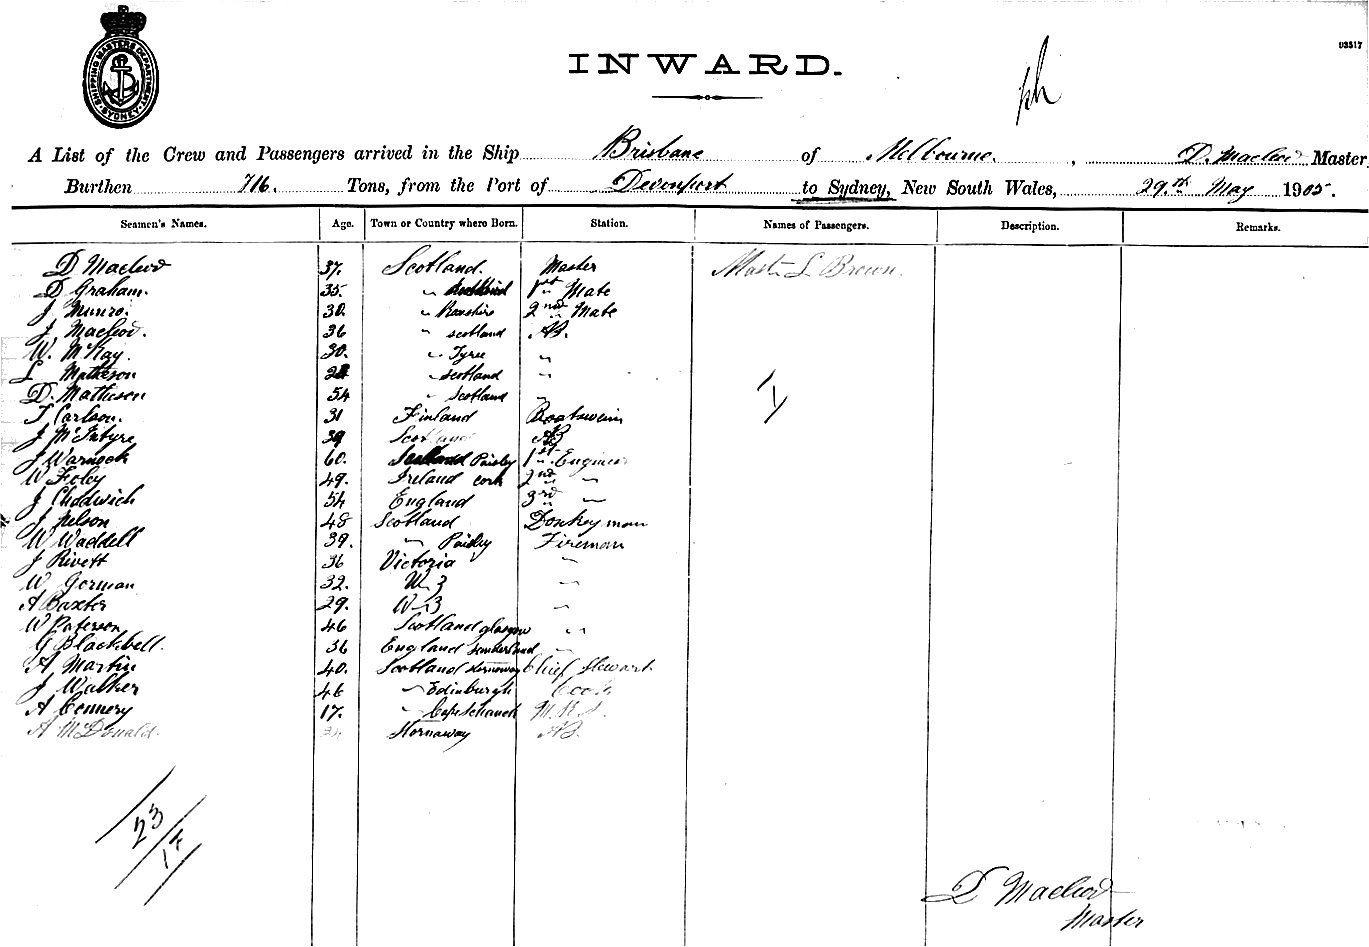 SHIPPING MASTERS DEPARTMENT SYDNEY
03517
INWARD.
A List of the Crew and Passengers arrived in the Ship Brisbane of Melbourne. , D. Macleod Master
Burthen 716. Tons, from the Port of Devonport to Sydney, New South Wales, 29th May 1905.
Seamen's Names. Age. Town or Country where Born. Station. Names of Passengers. Description. Remarks.
D Macleod 37. Scotland. Master Mastr L Brown.
D Graham. 35. " 1st Mate
J Munro. 30. " Rosshire 2nd " Mate
J Macleod. 36 " scotland AB.
W. McKay. 30. " Tyree "
L Matheson " scotland "
D. Matheson 54 " Scotland "
T Carlson. 31 Finland Boatswain
J McIntyre 39 Scotland AB
J Warnock 60. Scotland Paisley 1st " Engineer
W Foley 49. Ireland cork 2nd " "
J Chadwich 54 England 3rd " "
J Nelson 48 Scotland Donkeyman
W Waddell 39. " Paisley Fireman
J Rivett 36 Victoria "
W Gorman 32. "
A Baxter 29. "
W Paterson 46 Scotland glasgow "
G Blackbell. 36 England Sunderland "
A Martin 40. Scotland Stornaway Chief Stewart
J Walker 46 " Edinburgh Cook
A Connery 17. " Cape Schanck M.R.S.
A McDonald. 24 Stornaway AB.
1
23
D Macleod
Master